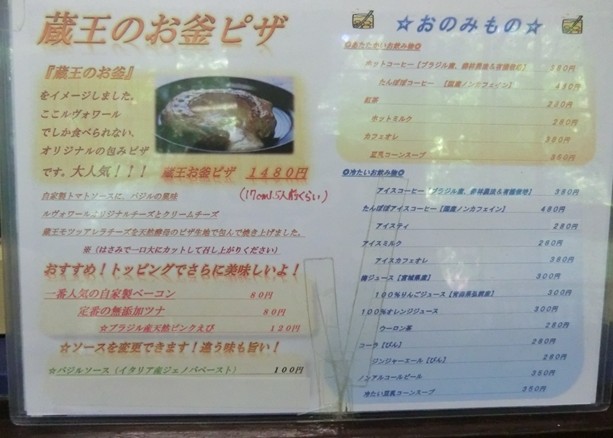 蔵王のお釜ピザ
『蔵王のお釜』
をイメージしました。
ここルヴォワール
でしか食べられない、
オリジナルの包みピザ
です。大人気！！！ 蔵王お釜ピザ 1480円
(17cm1.5人前くらい)
自家製トマトソースに、バジルの風味
ルヴォワールオリジナルチーズとクリームチーズ
蔵王モッツァレラチーズを天然酵母のピザ生地で包んで焼き上げました。
※（はさみで一口大にカットして召し上がりください）
おすすめ！トッピングでさらに美味しいよ！
一番人気の自家製ベーコン 80円
定番の無添加ツナ 80円
☆ブラジル産天然ピンクえび 120円
☆ソースを変更できます！違う味も旨い！
☆バジルソース（イタリア産ジェノバペースト） 100円
☆おのみもの☆
◎あたたかいお飲み物◎
ホットコーヒー【ブラジル産、 380円
たんぽぽコーヒー 【国産ノンカフェイン】 480円
紅茶
ホットミルク 280円
カフェオレ 380円
豆乳コーンスープ 350円
◎冷たいお飲み物◎
アイスコーヒー【ブラジル産、 380円
たんぽぽアイスコーヒー【国産ノンカフェイン】 480円
アイスティ 280円
アイスミルク 280円
アイスカフェオレ 380円
ジュース【宮城県産】 300円
100％りんごジュース【青森県弘前産】 300円
100％オレンジジュース 300円
ウーロン茶 280円
コーラ【びん】 280円
ジンジャーエール【びん】 280円
ノンアルコールビール 380円
冷たい豆乳コーンスープ 350円